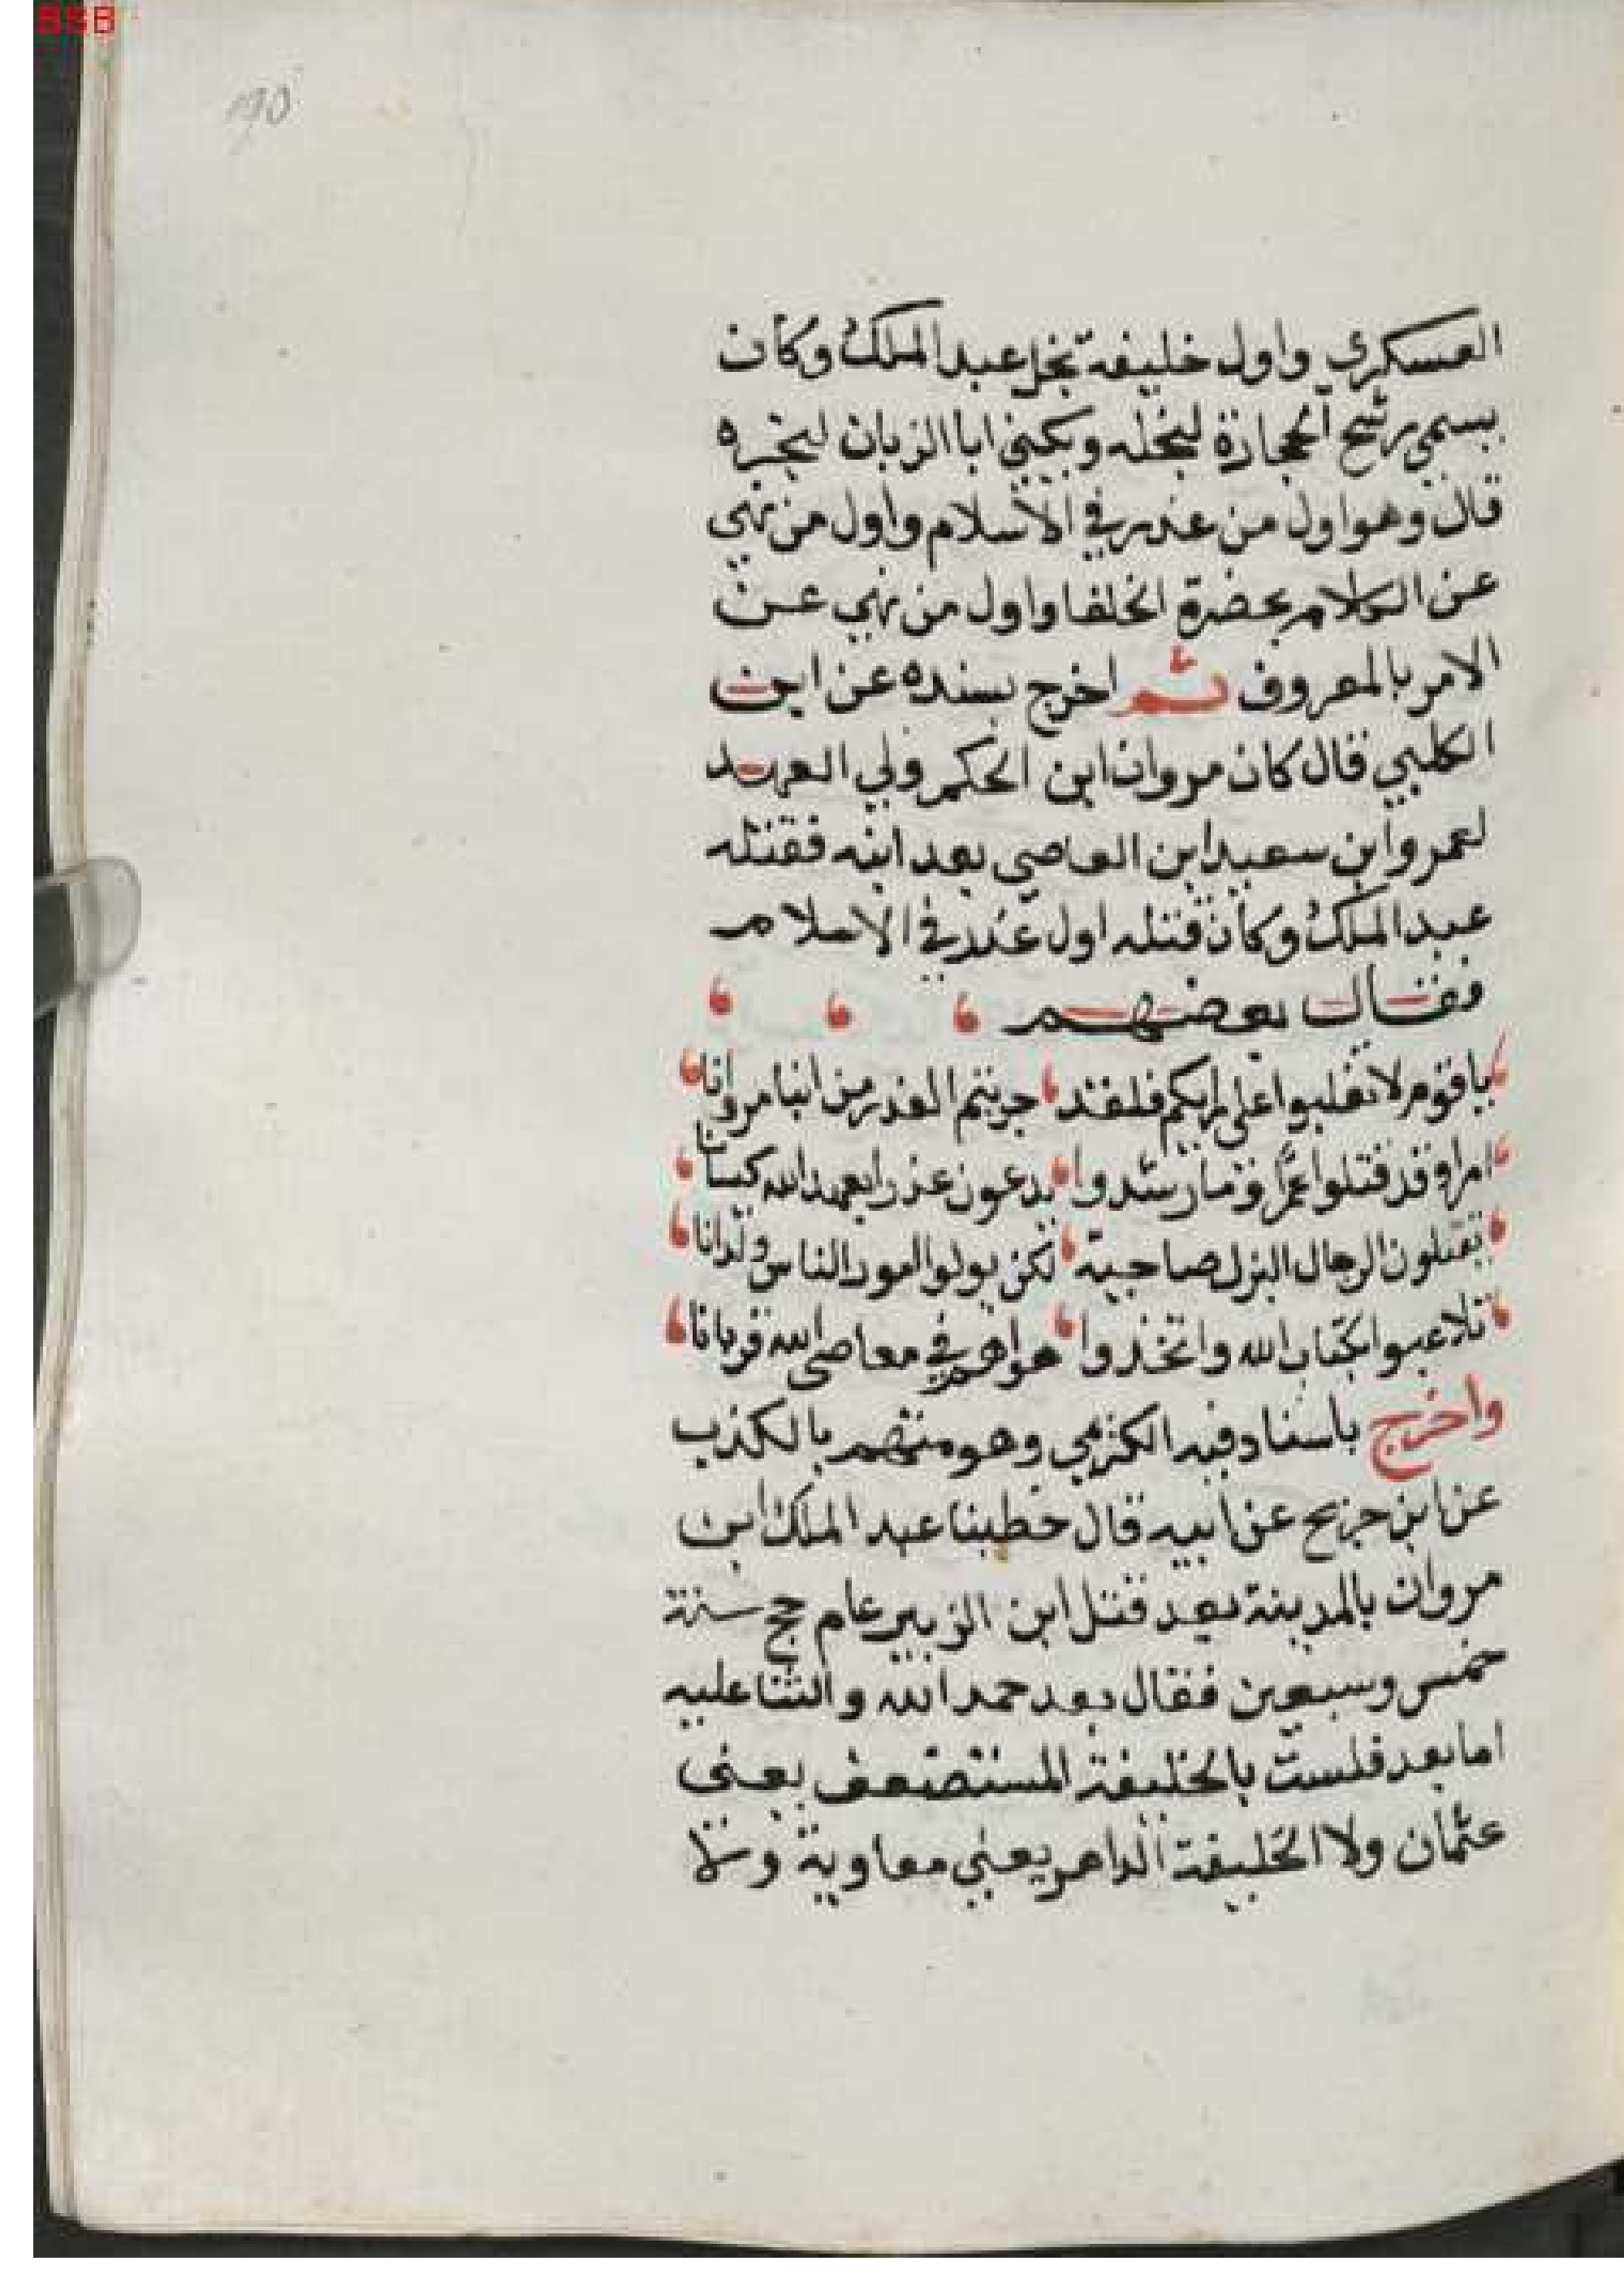 BSB
190
العسكري واول خليفة بخل عبد الملك وكان
يسمى رشح الحجارة لبخله ويكنى ابا الزبان لبخره
قال وهو اول من غدر في الاسلام واول من نهى
عن الكلام بحضرة الخلفا واول من نهى عن
الامر بالمعروف ثم اخرج بسنده عن ابن
الكلبي قال كان مروان ابن الحكم ولي العهد
لعمرو ابن سعيد ابن العاصي بعد ابنه فقتله
عبد الملك وكان قتله اول غدر في الاسلام
فقال بعضهم
يا قوم لا تغلبوا على رايكم فلقد جربتم الغدر من ابنا مروانا
امراو قد قتلوا عمرا وما رشدوا يدعون غدرا بعهد الله كيسانا
يقتلون الرجال البزل صاحية لكن يولوا امور الناس ولدانا
تلاعبوا بكتاب الله واتخذوا هواهم في معاصي الله قربانا
واخرج باسناد فيه الكزيمي وهو متهم بالكذب
عن ابن جريج عن ابيه قال خطبنا عبد الملك ابن
مروان بالمدينة بعد قتل ابن الزبير عام حج سنة
خمس وسبعين فقال بعد حمد الله والثنا عليه
اما بعد فلست بالخليفة المستضعف يعني
عثمان ولا الخليفة المداهن يعني معاوية ولا